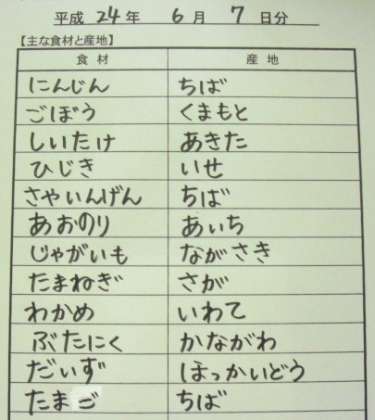 平成 24年 6月 7日分
【主な食材と産地】
食材 産地
にんじん ちば
ごぼう くまもと
しいたけ あきた
ひじき いせ
さやいんげん ちば
あおのり あいち
じゃがいも ながさき
たまねぎ さが
わかめ いわて
ぶたにく かながわ
だいず ほっかいどう
たまご ちば